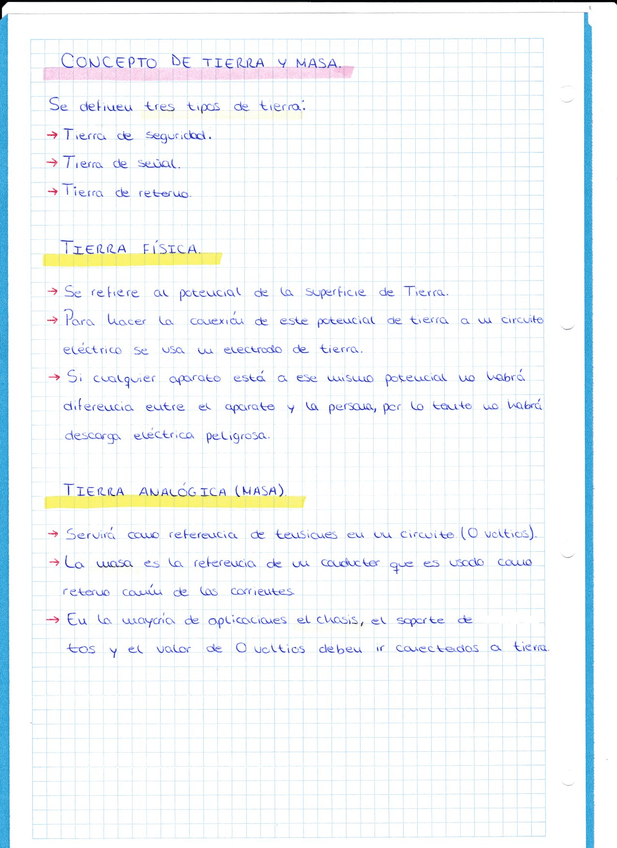 CONCEPTO DE TIERRA Y MASA.
Se definen tres tipos de tierra:
→ Tierra de seguridad.
→ Tierra de señal.
→ Tierra de retorno.
TIERRA FÍSICA.
→ Se refiere al potencial de la superficie de Tierra.
→ Para hacer la conexión de este potencial de tierra a un circuito
eléctrico se usa un electrodo de tierra.
→ Si cualquier aparato está a ese mismo potencial no habrá
diferencia entre el aparato y la persona, por lo tanto no habrá
descarga eléctrica peligrosa.
TIERRA ANALÓGICA (MASA)
→ Servirá como referencia de tensiones en un circuito (0 voltios).
→ La masa es la referencia de un conductor que es usado como
retorno común de las corrientes
→ En la mayoría de aplicaciones el chasis, el soporte de
tos y el valor de 0 voltios deben ir conectados a tierra.